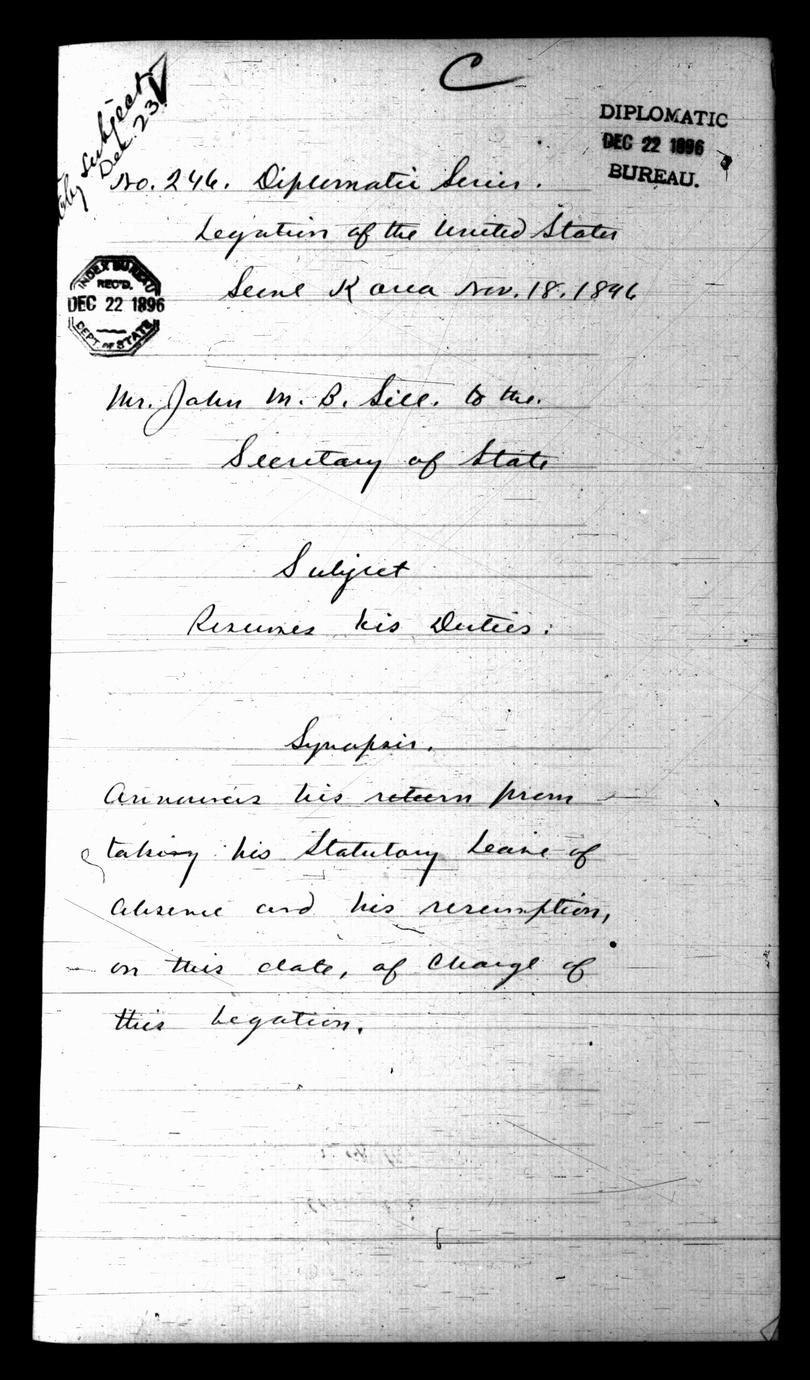 C
by subject
Dec. 23
DIPLOMATIC
DEC 22 1896
BUREAU.
No. 246. Diplomatic Series.
Legation of the United States
INDEX BUREAU
REC'D.
DEC 22 1896
DEPT. OF STATE
Seoul Korea Nov. 18. 1896
Mr. John M. B. Sill. to the.
Secretary of State
Subject
Resumes his Duties:
Synopsis.
Announces his return from
taking his Statutory Leave of
absence and his resumption,
on this date, of Charge of
this Legation.